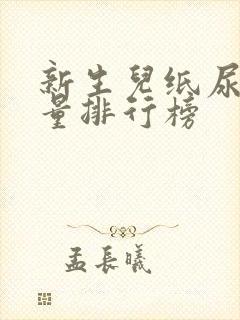 新生兒纸尿
量排行榜
孟長曦